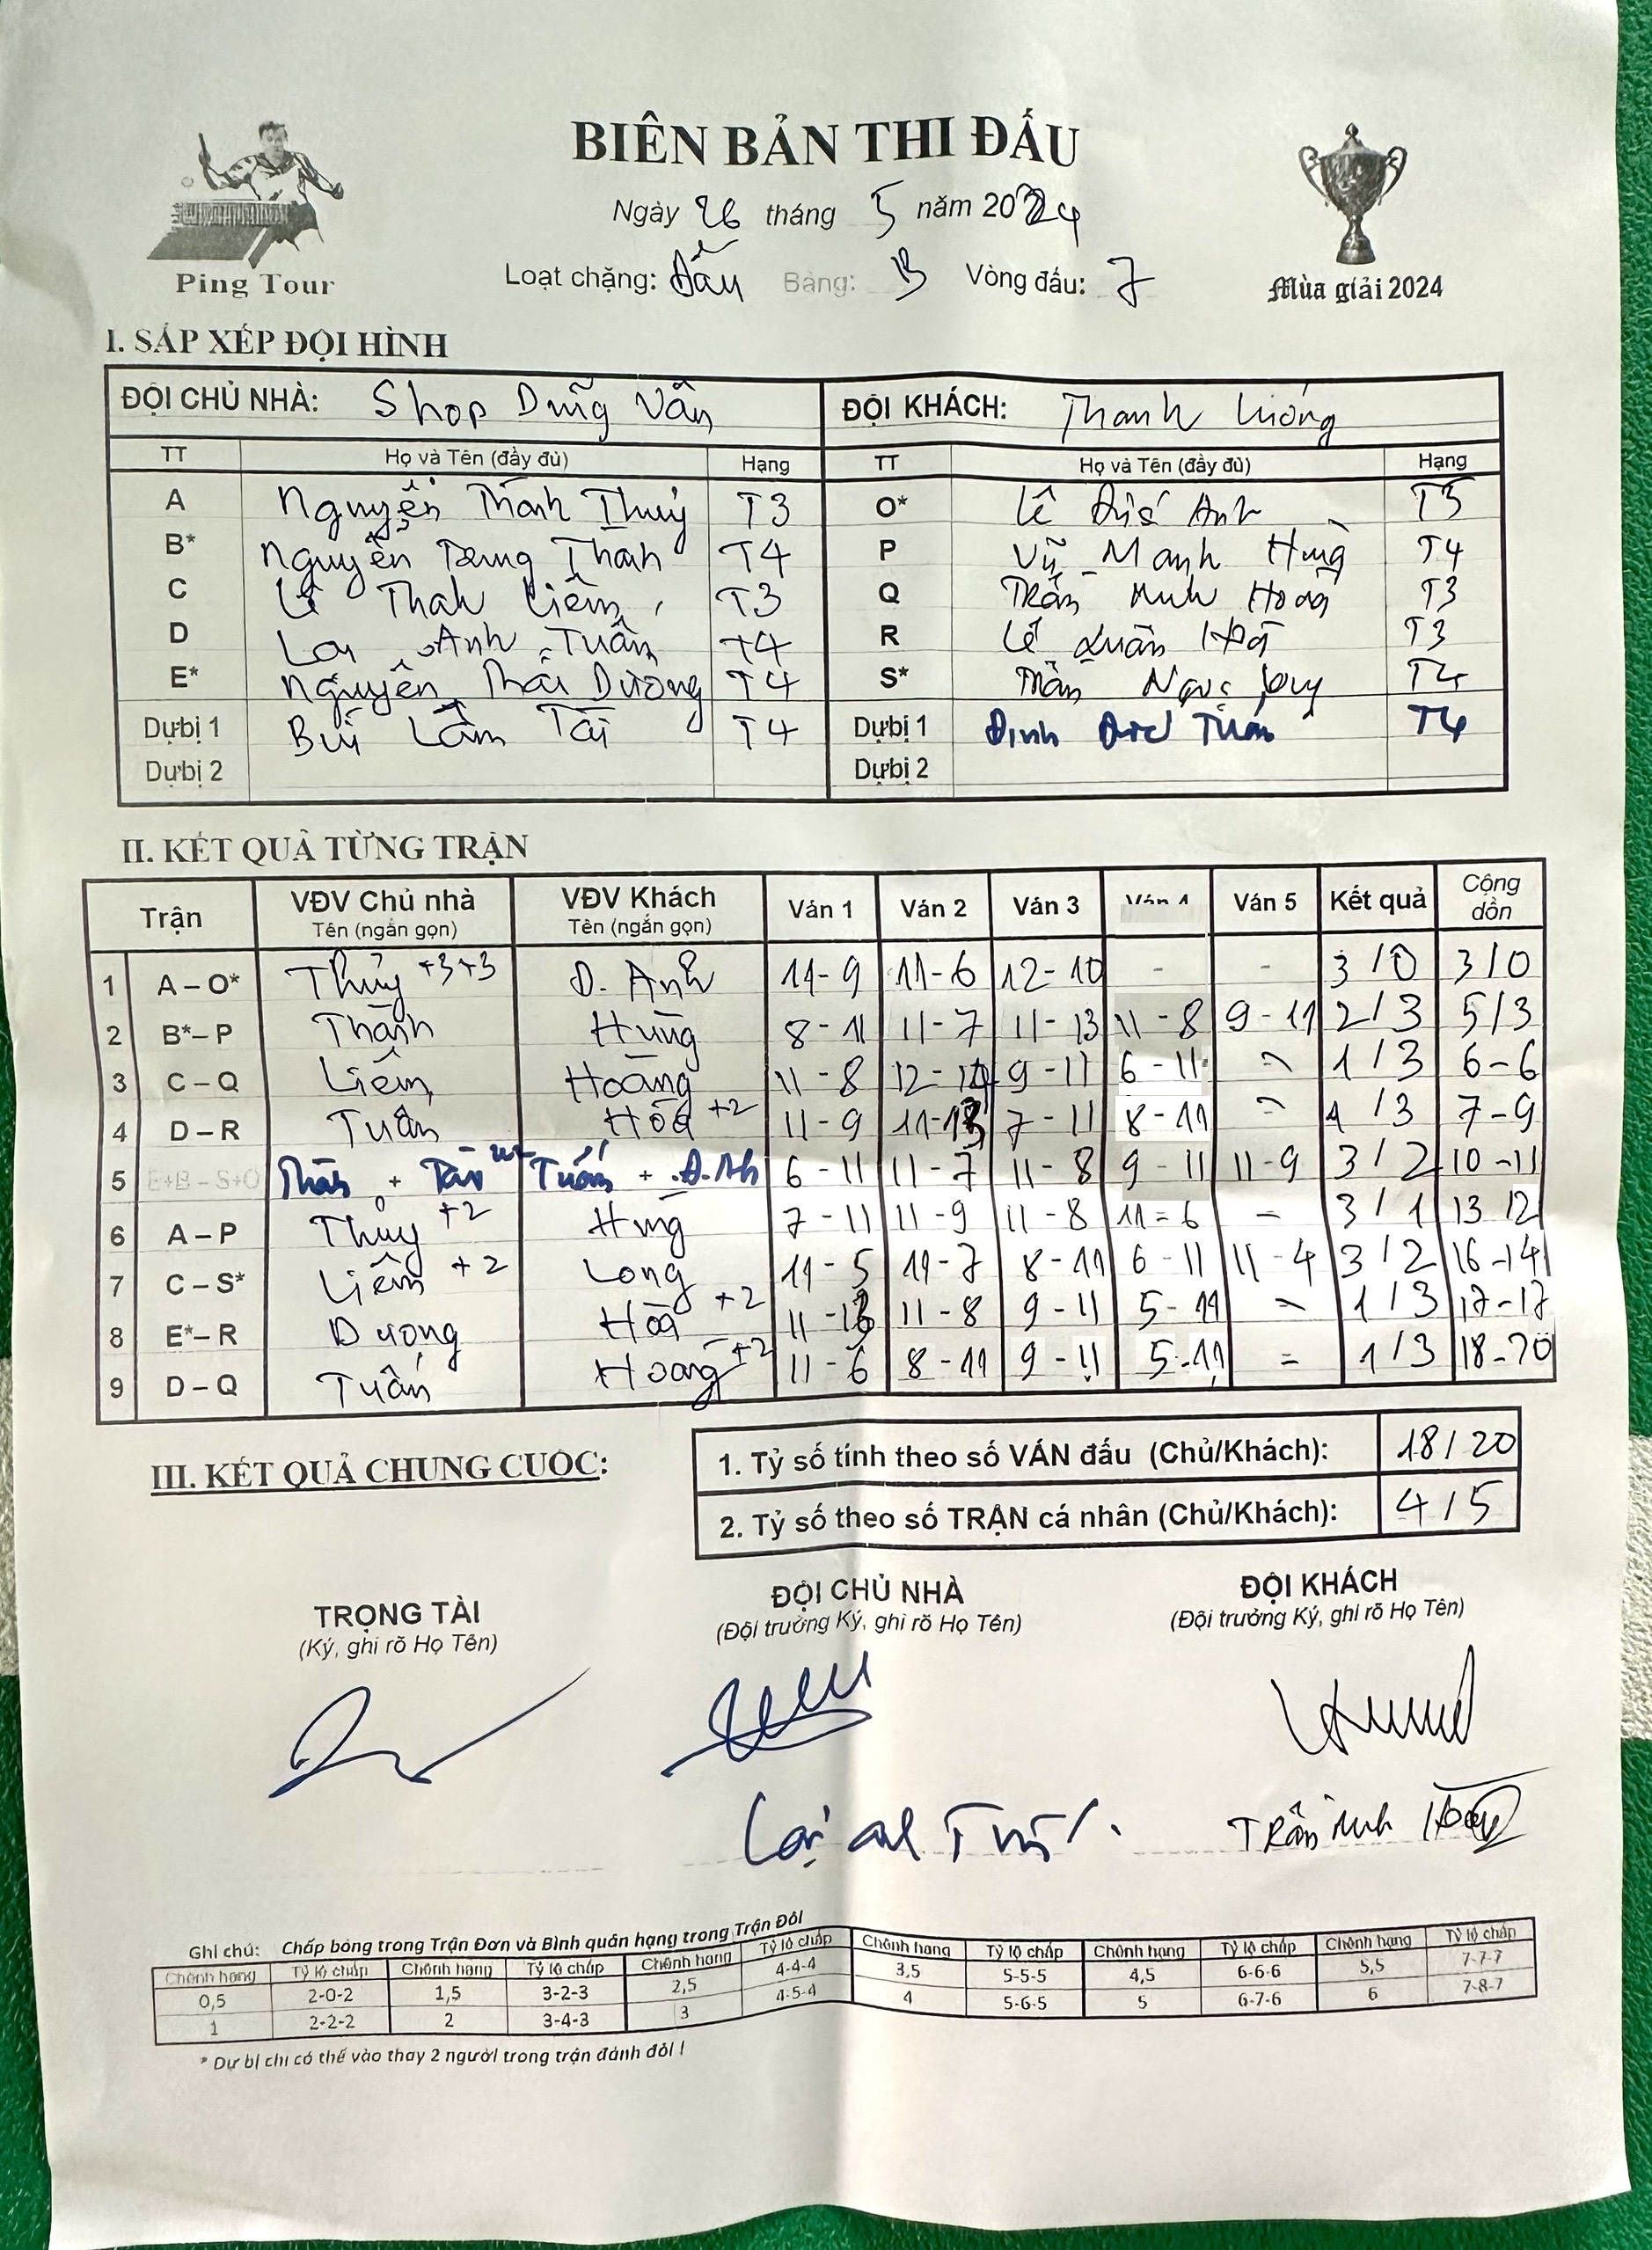 BIÊN BẢN THI ĐẤU
Ngày 26 tháng 5 năm 2024
Loạt chặng: Đấu Bảng: B Vòng đấu: 7
Ping Tour
Mùa giải 2024
I. SẮP XẾP ĐỘI HÌNH
ĐỘI CHỦ NHÀ: Shop Dũng Vân ĐỘI KHÁCH: Thanh
TT Họ và Tên (đầy đủ) Hạng TT Họ và Tên (đầy đủ) Hạng
A Nguyễn Thanh Thuỷ T3 O* Lê Đức Anh T3
B* Nguyễn Thanh T4 P Vũ Mạnh Hùng T4
C Lê Thanh Liêm T3 Q Trần Minh Hoàng T3
D Lại Anh Tuấn T4 R Lê Xuân Hoà T3
E* Nguyễn Thái Dương T4 S* Trần Ngọc T4
Dự bị 1 Bùi Tài T4 Dự bị 1 Đinh Đức Tuấn T4
Dự bị 2 Dự bị 2
II. KẾT QUẢ TỪNG TRẬN
Trận VĐV Chủ nhà VĐV Khách Ván 1 Ván 2 Ván 3 Ván 4 Ván 5 Kết quả Cộng dồn
Tên (ngắn gọn) Tên (ngắn gọn)
1 A – O* Thủy +3+3 Đ. Anh 11-9 11-6 12-10 - - 3/0 3/0
2 B* – P Thành Hùng 8-11 11-7 11-13 11-8 9-11 2/3 5/3
3 C – Q Liêm Hoàng 11-8 9-11 6-11 1/3 6-6
4 D – R Tuấn Hoà +2 11-9 11-13 7-11 8-11 1/3 7-9
5 E+B – S+O + Tài Tuấn + Đ.Anh 6-11 11-7 11-8 9-11 11-9 3/2 10-11
6 A – P Thủy +2 Hưng 7-11 11-9 11-8 11=6 - 3/1 13 12
7 C – S* Liêm +2 Long 11-5 11-7 8-11 6-11 11-4 3/2 16-14
8 E* – R Dương Hoà +2 11-13 11-8 9-11 5-11 - 1/3 17-17
9 D – Q Tuấn Hoàng +2 11-6 8-11 9-11 5-11 = 1/3 18-20
III. KẾT QUẢ CHUNG CUỘC:
1. Tỷ số tính theo số VÁN đấu (Chủ/Khách): 18/20
2. Tỷ số theo số TRẬN cá nhân (Chủ/Khách): 4/5
TRỌNG TÀI ĐỘI CHỦ NHÀ ĐỘI KHÁCH
(Ký, ghi rõ Họ Tên) (Đội trưởng Ký, ghi rõ Họ Tên) (Đội trưởng Ký, ghi rõ Họ Tên)
Lại Trần Minh Hoàng
Ghi chú: Chấp bóng trong Trận Đơn và Bình quân hạng trong Trận Đôi
Chênh hạng Tỷ lệ chấp Chênh hạng Tỷ lệ chấp Chênh hạng Tỷ lệ chấp Chênh hạng Tỷ lệ chấp Chênh hạng Tỷ lệ chấp Chênh hạng Tỷ lệ chấp
0,5 2-0-2 1,5 3-2-3 2,5 4-4-4 3,5 5-5-5 4,5 6-6-6 5,5 7-7-7
1 2-2-2 2 3-4-3 3 4-5-4 4 5-6-5 5 6-7-6 6 7-8-7
* Dự bị chỉ có thể vào thay 2 người trong trận đánh đôi !